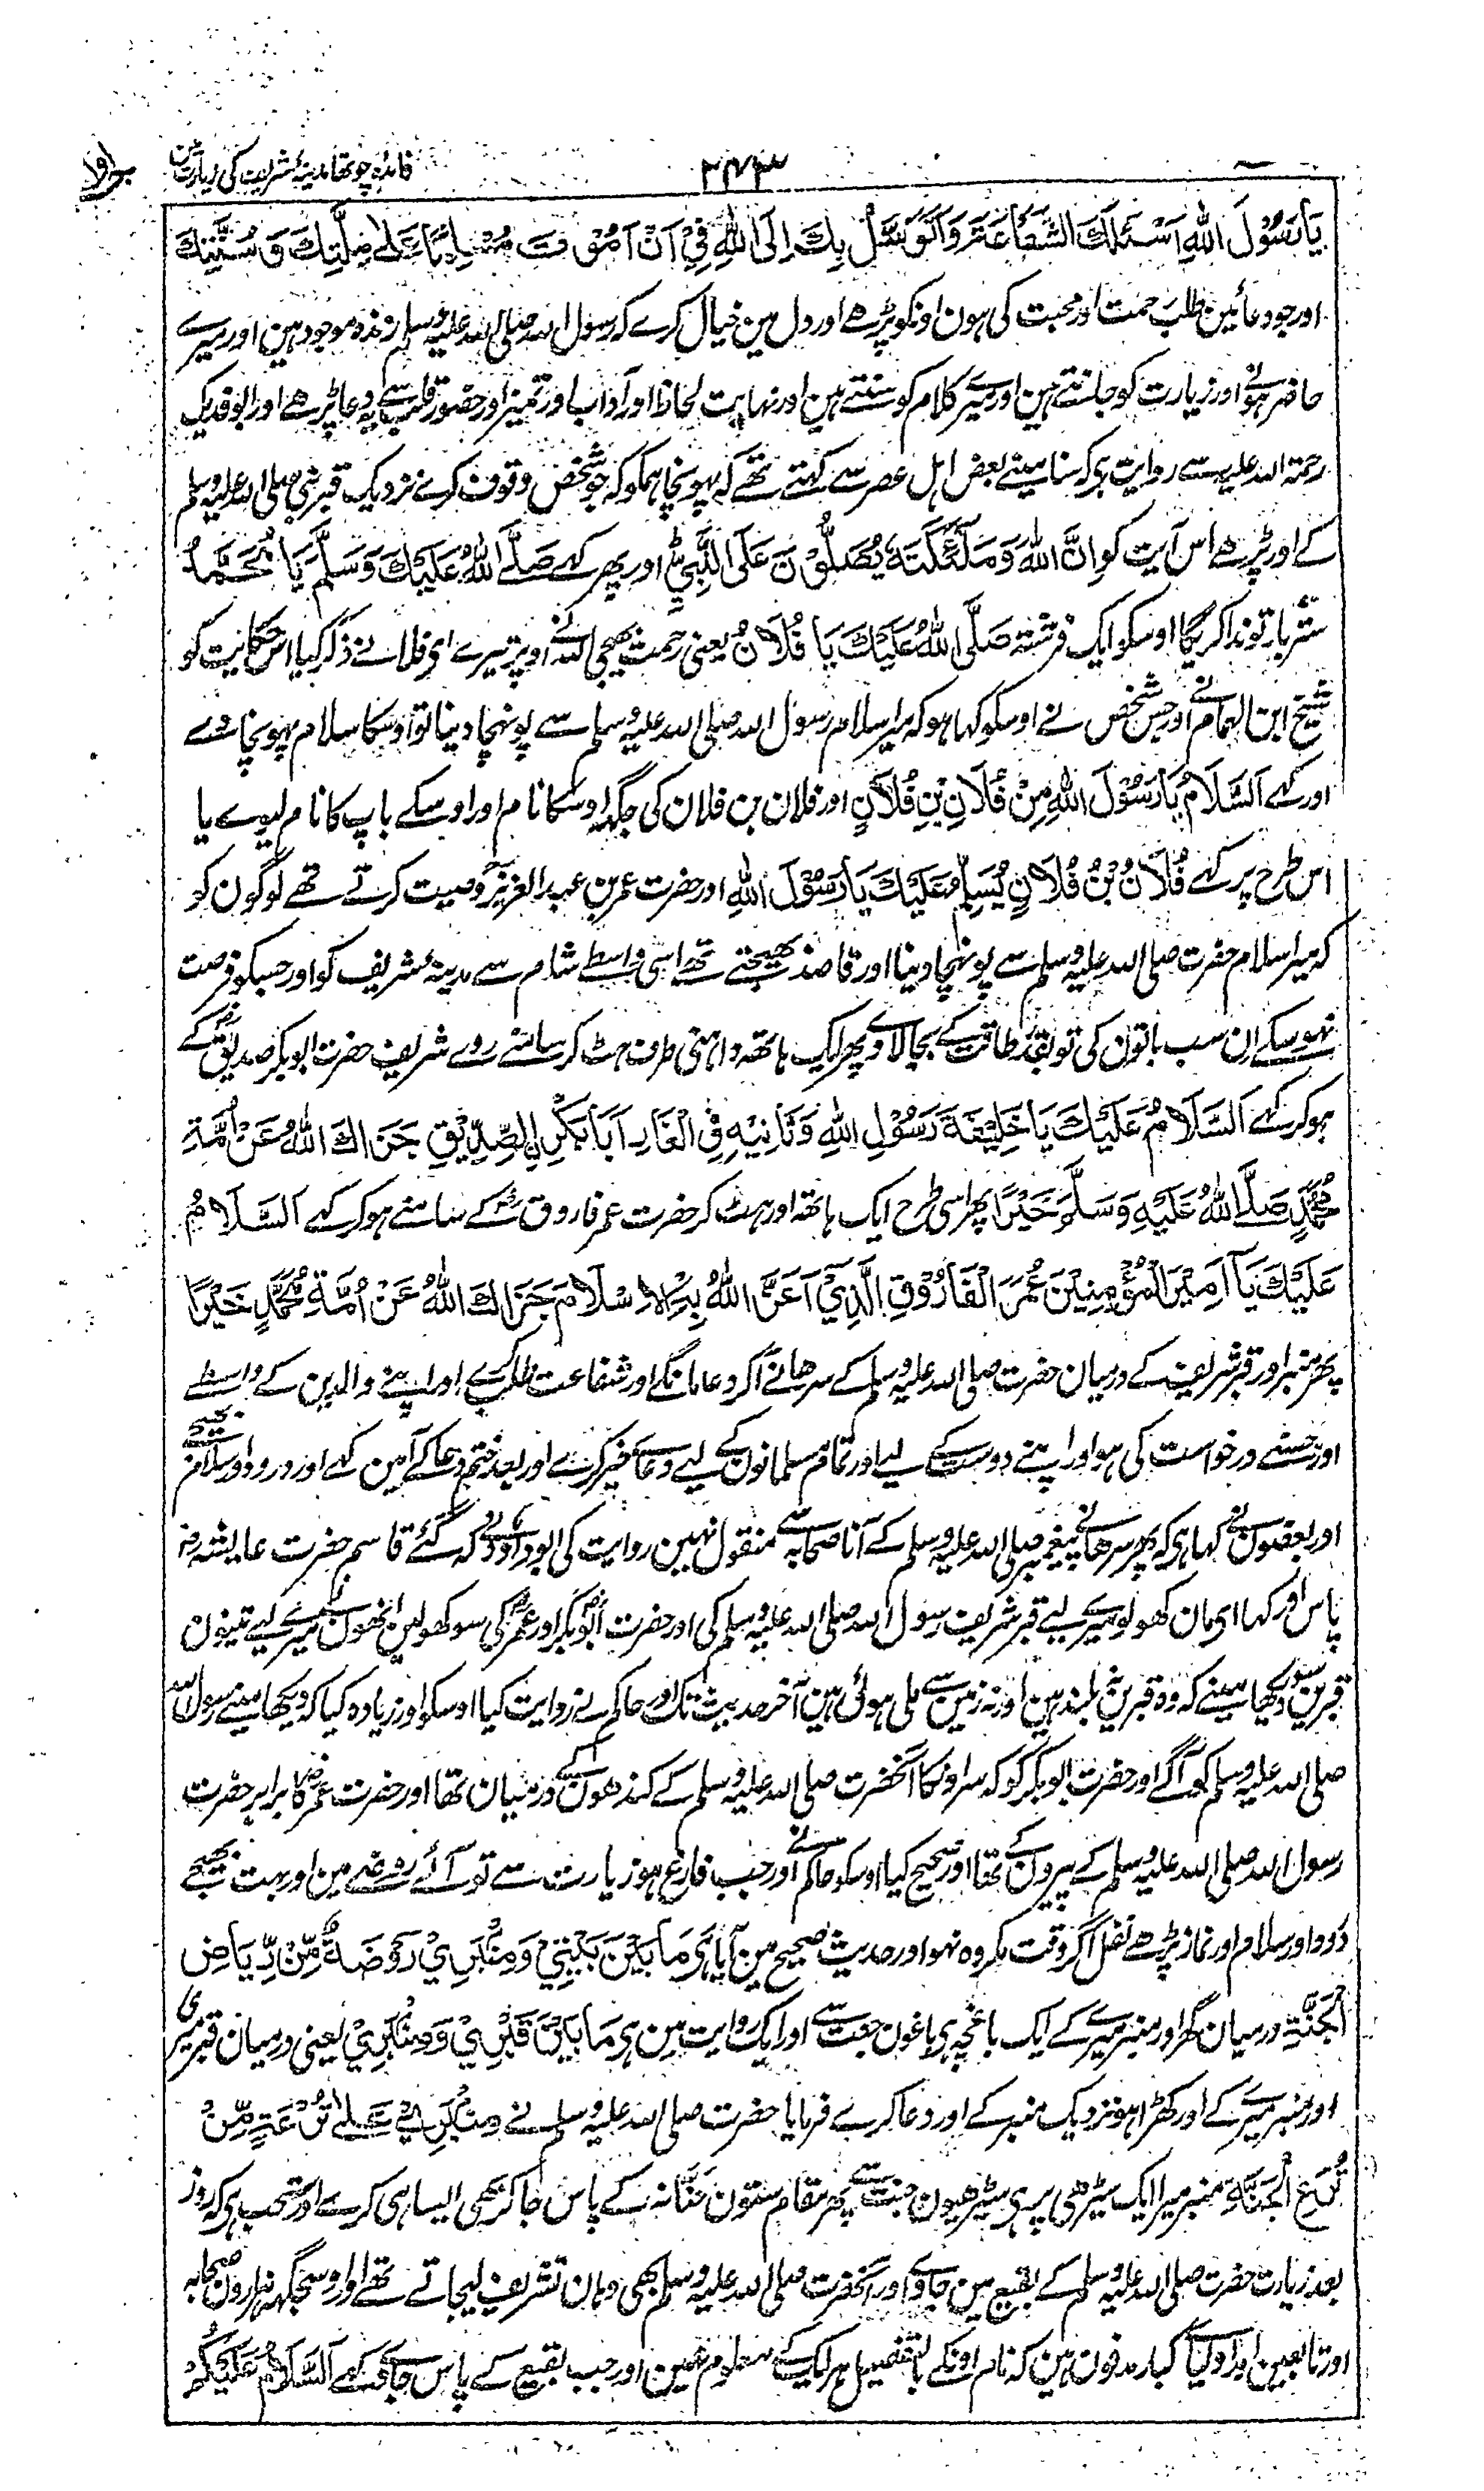 فائدہ چوتھا مدینۂ شریف کی زیارت مین
۲۴۳
یَا رَسُوْلَ اللّٰهِ اَسْئَلُكَ الشَّفَاعَتَ وَاَتَوَسَّلُ بِكَ اِلَى اللّٰهِ فِيْ اَنْ اَمُوْتَ مُسْلِمًا عَلٰى مِلَّتِكَ وَسُنَّتِكَ
اور جو دعائین طلب رحمت اور محبت کی ہون اونکو پڑھے اور دل مین خیال کرے کہ رسول اللہ صلی اللہ علیہ وسلم زندہ موجود ہین اور میرے
حاضر ہونے اور زیارت کو جانتے ہین اور میرے کلام کو سنتے ہین اور نہایت لحاظ اور آداب اور تمیز اور حضور قلب سے یہ دعا پڑھے اور ابو فدیک
رحمۃ اللہ علیہ سے روایت ہی کہ سنا مینے بعض اہل عصر سے کہتے تھے کہ پہونچا ہمکو کہ جو شخص وقوف کرے نزدیک قبر نبی صلی اللہ علیہ وسلم
کے اور پڑھے اس آیت کو اِنَّ اللّٰهَ وَمَلٰٓئِكَتَهٗ یُصَلُّوْنَ عَلَى النَّبِيِّ اور پھر کہے صَلَّى اللّٰهُ عَلَيْكَ وَسَلَّمَ يَا مُحَمَّدُ
ستر بار تو ندا کریگا اوسکو ایک فرشتہ صَلَّى اللّٰهُ عَلَيْكَ يَا فُلَانُ یعنی رحمت بھیجی اللہ نے اوپر تیرے ای فلانے ذکر کیا اس حکایت کو
شیخ ابن الہمام نے اور جس شخص نے اوسکو کہا ہو کہ میرا سلام رسول اللہ صلی اللہ علیہ وسلم سے پونہچا دینا تو اوسکا سلام پہونچاوے
اور کہے اَلسَّلَامُ يَا رَسُوْلَ اللّٰهِ مِنْ فُلَانِ بْنِ فُلَانٍ اور فلان بن فلان کی جگہ اوسکا نام اور اوسکے باپ کا نام لیوے یا
اس طرح پر کہے فُلَانُ بْنُ فُلَانٍ يُسَلِّمُ عَلَيْكَ يَا رَسُوْلَ اللّٰهِ اور حضرت عمر بن عبدالعزیز وصیت کرتے تھے لوگون کو
کہ میرا سلام حضرت صلی اللہ علیہ وسلم سے پونہچا دینا اور قاصد بھیجتے تھے اسی واسطے شام سے مدینۂ شریف کو اور جسکو فرصت
نہو سکے ان سب باتون کی تو بقدر طاقت کے بجا لاوے پھر ایک ہاتھہ داہنی طرف ہٹ کر سامنے روے شریف حضرت ابو بکر صدیقؓ کے
ہو کر کہے اَلسَّلَامُ عَلَيْكَ يَا خَلِيْفَةَ رَسُوْلِ اللّٰهِ وَثَانِيْهِ فِي الْغَارِ اَبَا بَكْرٍ الصِّدِّيْقِ جَزَاكَ اللّٰهُ عَنْ اُمَّةِ
مُحَمَّدٍ صَلَّى اللّٰهُ عَلَيْهِ وَسَلَّمَ خَيْرًا پھر اسی طرح ایک ہاتھہ اور ہٹ کر حضرت عمر فاروقؓ کے سامنے ہو کر کہے اَلسَّلَامُ
عَلَيْكَ يَا اَمِيْرَ الْمُؤْمِنِيْنَ عُمَرَ الْفَارُوْقِ الَّذِيْ اَعَزَّ اللّٰهُ بِهِ الْاِسْلَامَ جَزَاكَ اللّٰهُ عَنْ اُمَّةِ مُحَمَّدٍ خَيْرًا
پھر منبر اور قبر شریف کے درمیان حضرت صلی اللہ علیہ وسلم کے سرھانے آ کر دعا مانگے اور شفاعت طلب کرے اور اپنے والدین کے واسطے
اور جسنے درخواست کی ہو اور اپنے دوست کے لیے اور تمام مسلمانون کے لیے دعاے خیر کرے اور بعد ختم دعا کے آمین کہے اور درود اور سلام بھیجے
اور بعضون نے کہا ہی کہ پھر سرھانے پیغمبر صلی اللہ علیہ وسلم کے آنا صحابہ سے منقول نہین روایت کی ابو داؤد نے کہ گئے قاسم حضرت عایشہؓ
پاس اور کہا ای مان کھولو میرے لیے قبر شریف رسول اللہ صلی اللہ علیہ وسلم کی اور حضرت ابو بکرؓ اور عمرؓ کی سو کھولین انھون نے میرے لیے تینون
قبرین سو دیکھا مینے کہ وہ قبرین نہ بلند ہین اور نہ زمین سے ملی ہوئی ہین آخر حدیث تک اور حاکم نے روایت کیا اوسکو اور زیادہ کیا کہ دیکھا مینے رسول اللہ
صلی اللہ علیہ وسلم کو آگے اور حضرت ابو بکر کو کہ سر اونکا آنحضرت صلی اللہ علیہ وسلم کے کندھون کے درمیان تھا اور حضرت عمرؓ کا برابر حضرت
رسول اللہ صلی اللہ علیہ وسلم کے پیرون کے تھا اور صحیح کیا اوسکو حاکم نے اور جب فارغ ہو زیارت سے تو آئے روضے مین اور بہت بھیجے
درود اور سلام اور نماز پڑھے نفل اگر وقت مکروہ نہو اور حدیث صحیح مین آیا ہی مَا بَيْنَ بَيْتِيْ وَمِنْبَرِيْ رَوْضَةٌ مِّنْ رِّيَاضِ
الْجَنَّةِ درمیان گھر اور منبر میرے کے ایک باغچہ ہی باغون جنت سے اور ایک روایت مین ہی مَا بَيْنَ قَبْرِيْ وَمِنْبَرِيْ یعنی درمیان قبر میری
اور منبر میرے کے اور کھڑا ہو نزدیک منبر کے اور دعا کرے فرمایا حضرت صلی اللہ علیہ وسلم نے مِنْبَرِيْ عَلٰى تُرْعَةٍ مِّنْ
تُرَعِ الْجَنَّةِ منبر میرا ایک سیڑھی پر ہی سیڑھیون جنت سے پھر مقام ستون حَنَّانہ کے پاس جا کر بھی ایسا ہی کرے اور مستحب ہی کہ روز
بعد زیارت حضرت صلی اللہ علیہ وسلم کے بقیع مین جاوے اور آنحضرت صلی اللہ علیہ وسلم بھی وہان تشریف لیجاتے تھے اور اوسجگہہ ہزارون صحابہ
اور تابعین اور اولیاے کبار مدفون ہین کہ نام اونکے بالتفصیل ہر ایک کے معلوم نہین اور جب بقیع کے پاس جاوے کہے اَلسَّلَامُ عَلَيْكُمْ